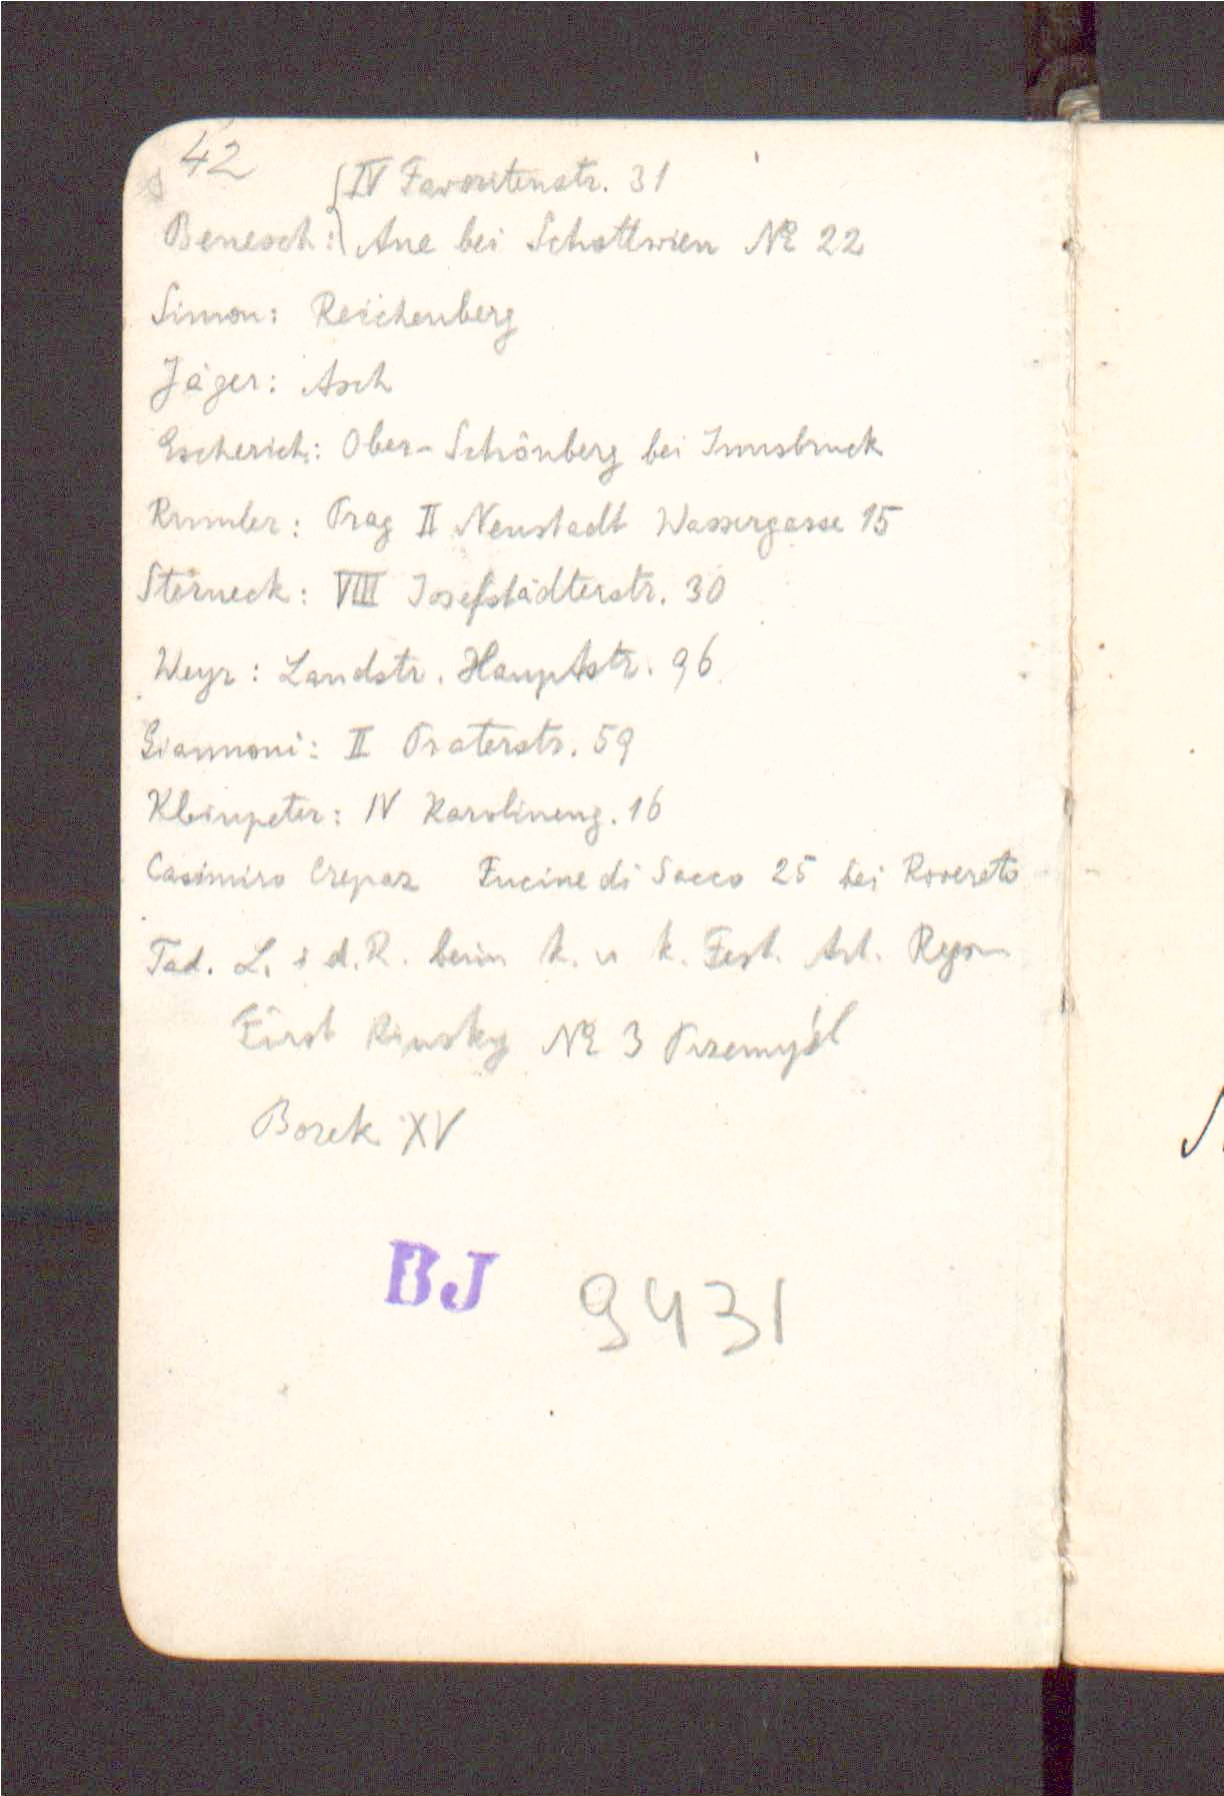 42
IV Favoritenstr. 31
Benesch: Aue bei Schottwien № 22
Simon: Reichenberg
Jäger: Asch
Escherich: Ober-Schönberg bei Innsbruck
Rumler: Prag II Neustadt Wassergasse 15
Sterneck: VIII Josefstädterstr. 30
Weyr: Landstr. Hauptstr. 96
Giannoni: II Praterstr. 59
Kleinpeter: IV Karolineng. 16
Casimiro Crepaz Fucine di Sacco 25 bei Rovereto
Tad. L. i d. R. beim k. u k. Fest. Art. Reg
Fürst Kinsky № 3 Przemyśl
Borek XV
BJ 9431